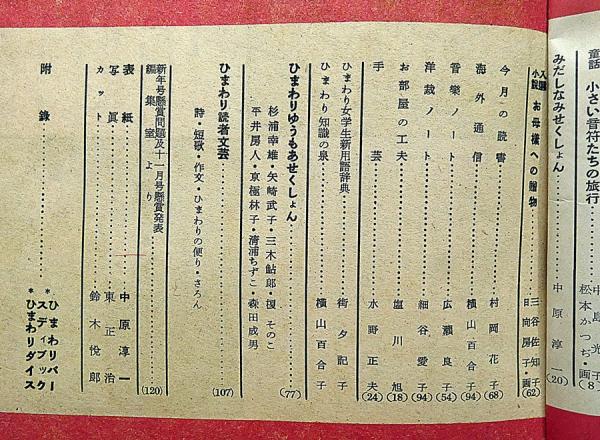 童話 小さい音符たちの旅行……中島光子 松本かつぢ・画(8)
みだしなみせくしょん……中原淳一(20)
入選小説 お母様への贈物……三谷佐知子 日向房子・画(62)
今月の読書……村岡花子(68)
海外通信……横山百合子(94)
音楽ノート……広瀬良子(54)
洋裁ノート……細谷愛子(94)
お部屋の工夫……塩川旭(18)
手芸……水野正夫(24)
ひまわり女学生新用語辞典……街夕記子
ひまわり知識の泉……横山百合子
ひまわりゆうもあせくしょん……(77)
杉浦幸雄・矢崎武子・三木鮎郎・援そのこ
平井房人・京極林子・清浦ちずこ・森田成男
ひまわり読者文芸……(107)
詩・短歌・作文・ひまわりの便り・さろん
新年号懸賞問題及十一月号懸賞発表
編集室より……(120)
表紙……中原淳一
写真……東正治
カット……鈴木悦郎
附録……*ひまわりバースデイブック
*ひまわりダイス